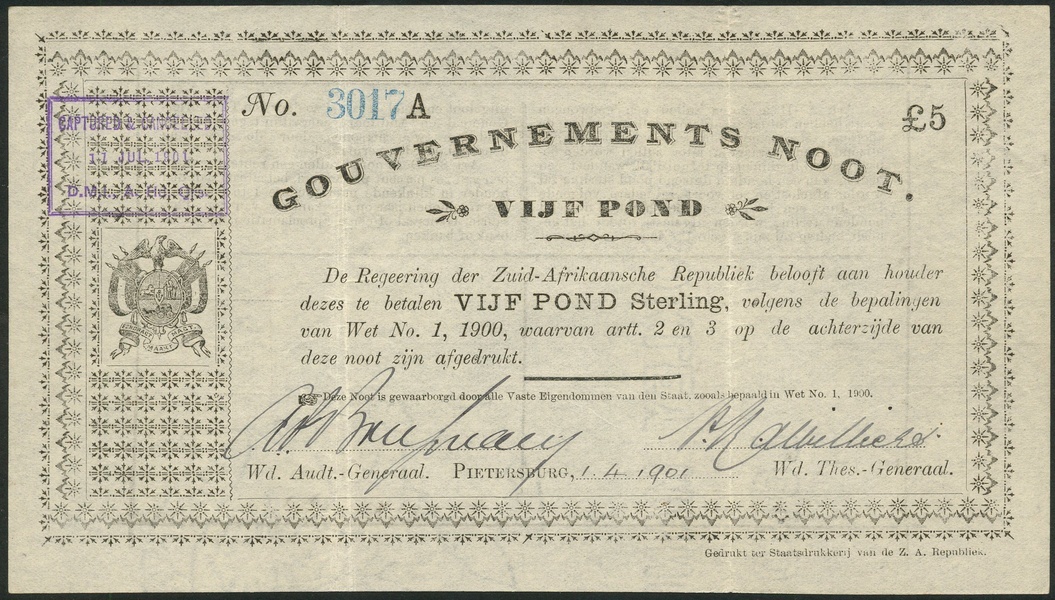 No. 3017 A
£5
GOUVERNEMENTS NOOT.
VIJF POND
CAPTURED &
11 JUL 1901
De Regeering der Zuid-Afrikaansche Republiek belooft aan houder
dezes te betalen VIJF POND Sterling, volgens de bepalingen
van Wet No. 1, 1900, waarvan artt. 2 en 3 op de achterzijde van
deze noot zijn afgedrukt.
Deze Noot is gewaarborgd door alle Vaste Eigendommen van den Staat, zooals bepaald in Wet No. 1, 1900.
Wd. Audt.-Generaal. PIETERSBURG, 1.4.1901 Wd. Thes.-Generaal.
Gedrukt ter Staatsdrukkerij van de Z. A. Republiek.